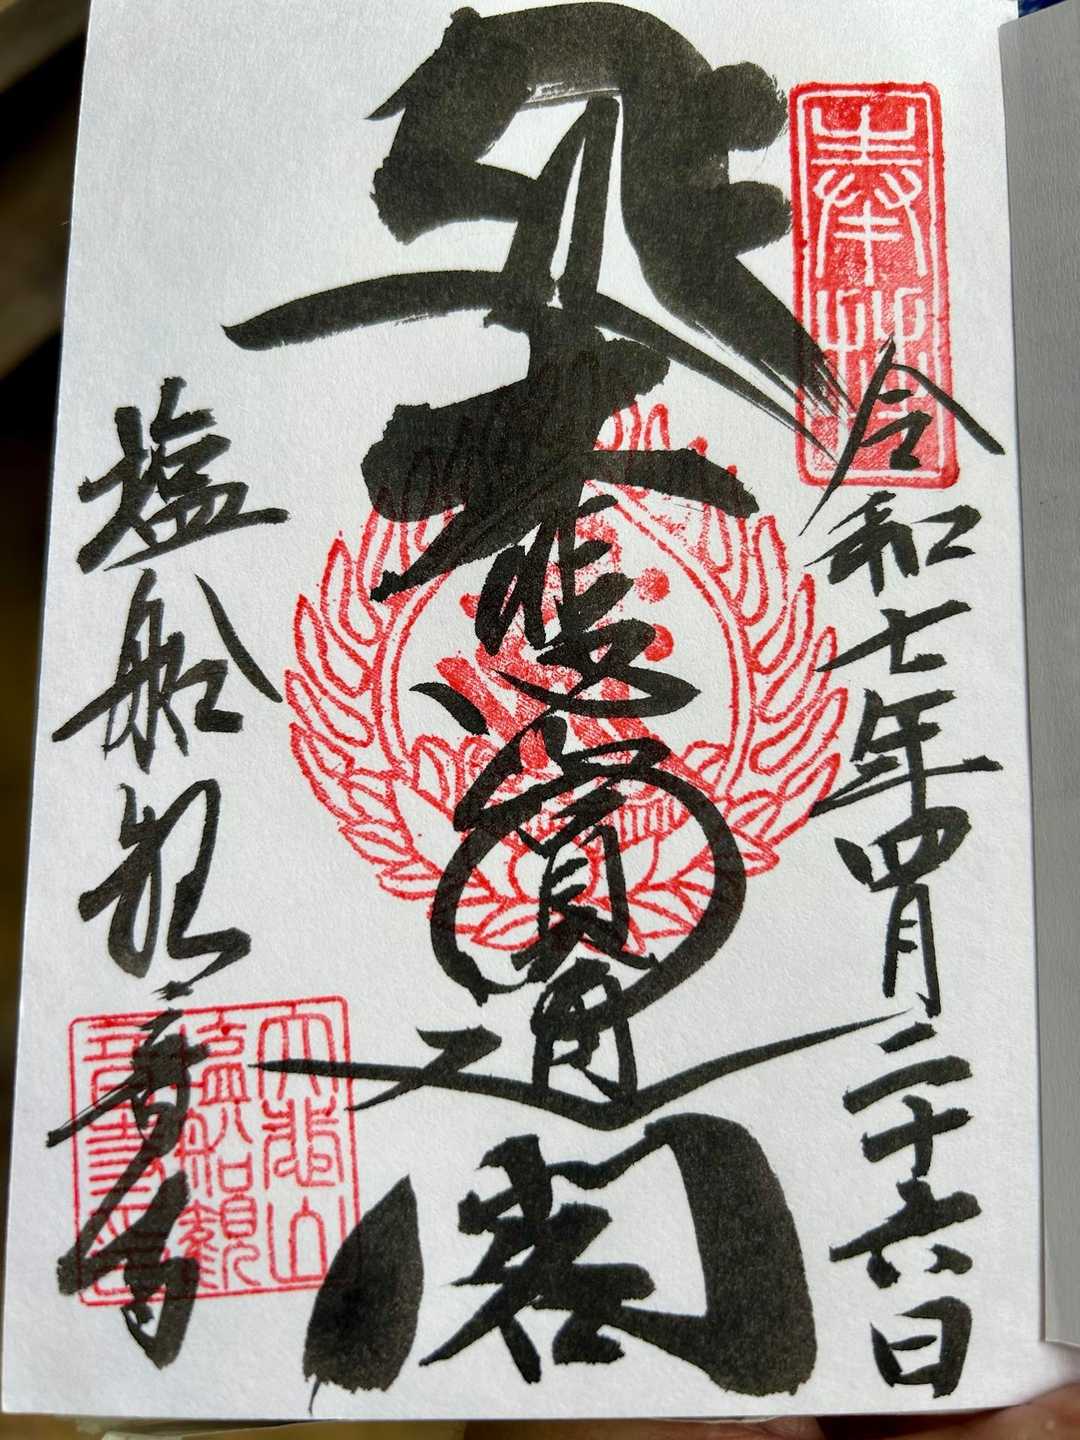 奉拝
令和七年四月二十六日
大悲
圓通閣
塩船観音寺
大悲山
塩船観
音寺印